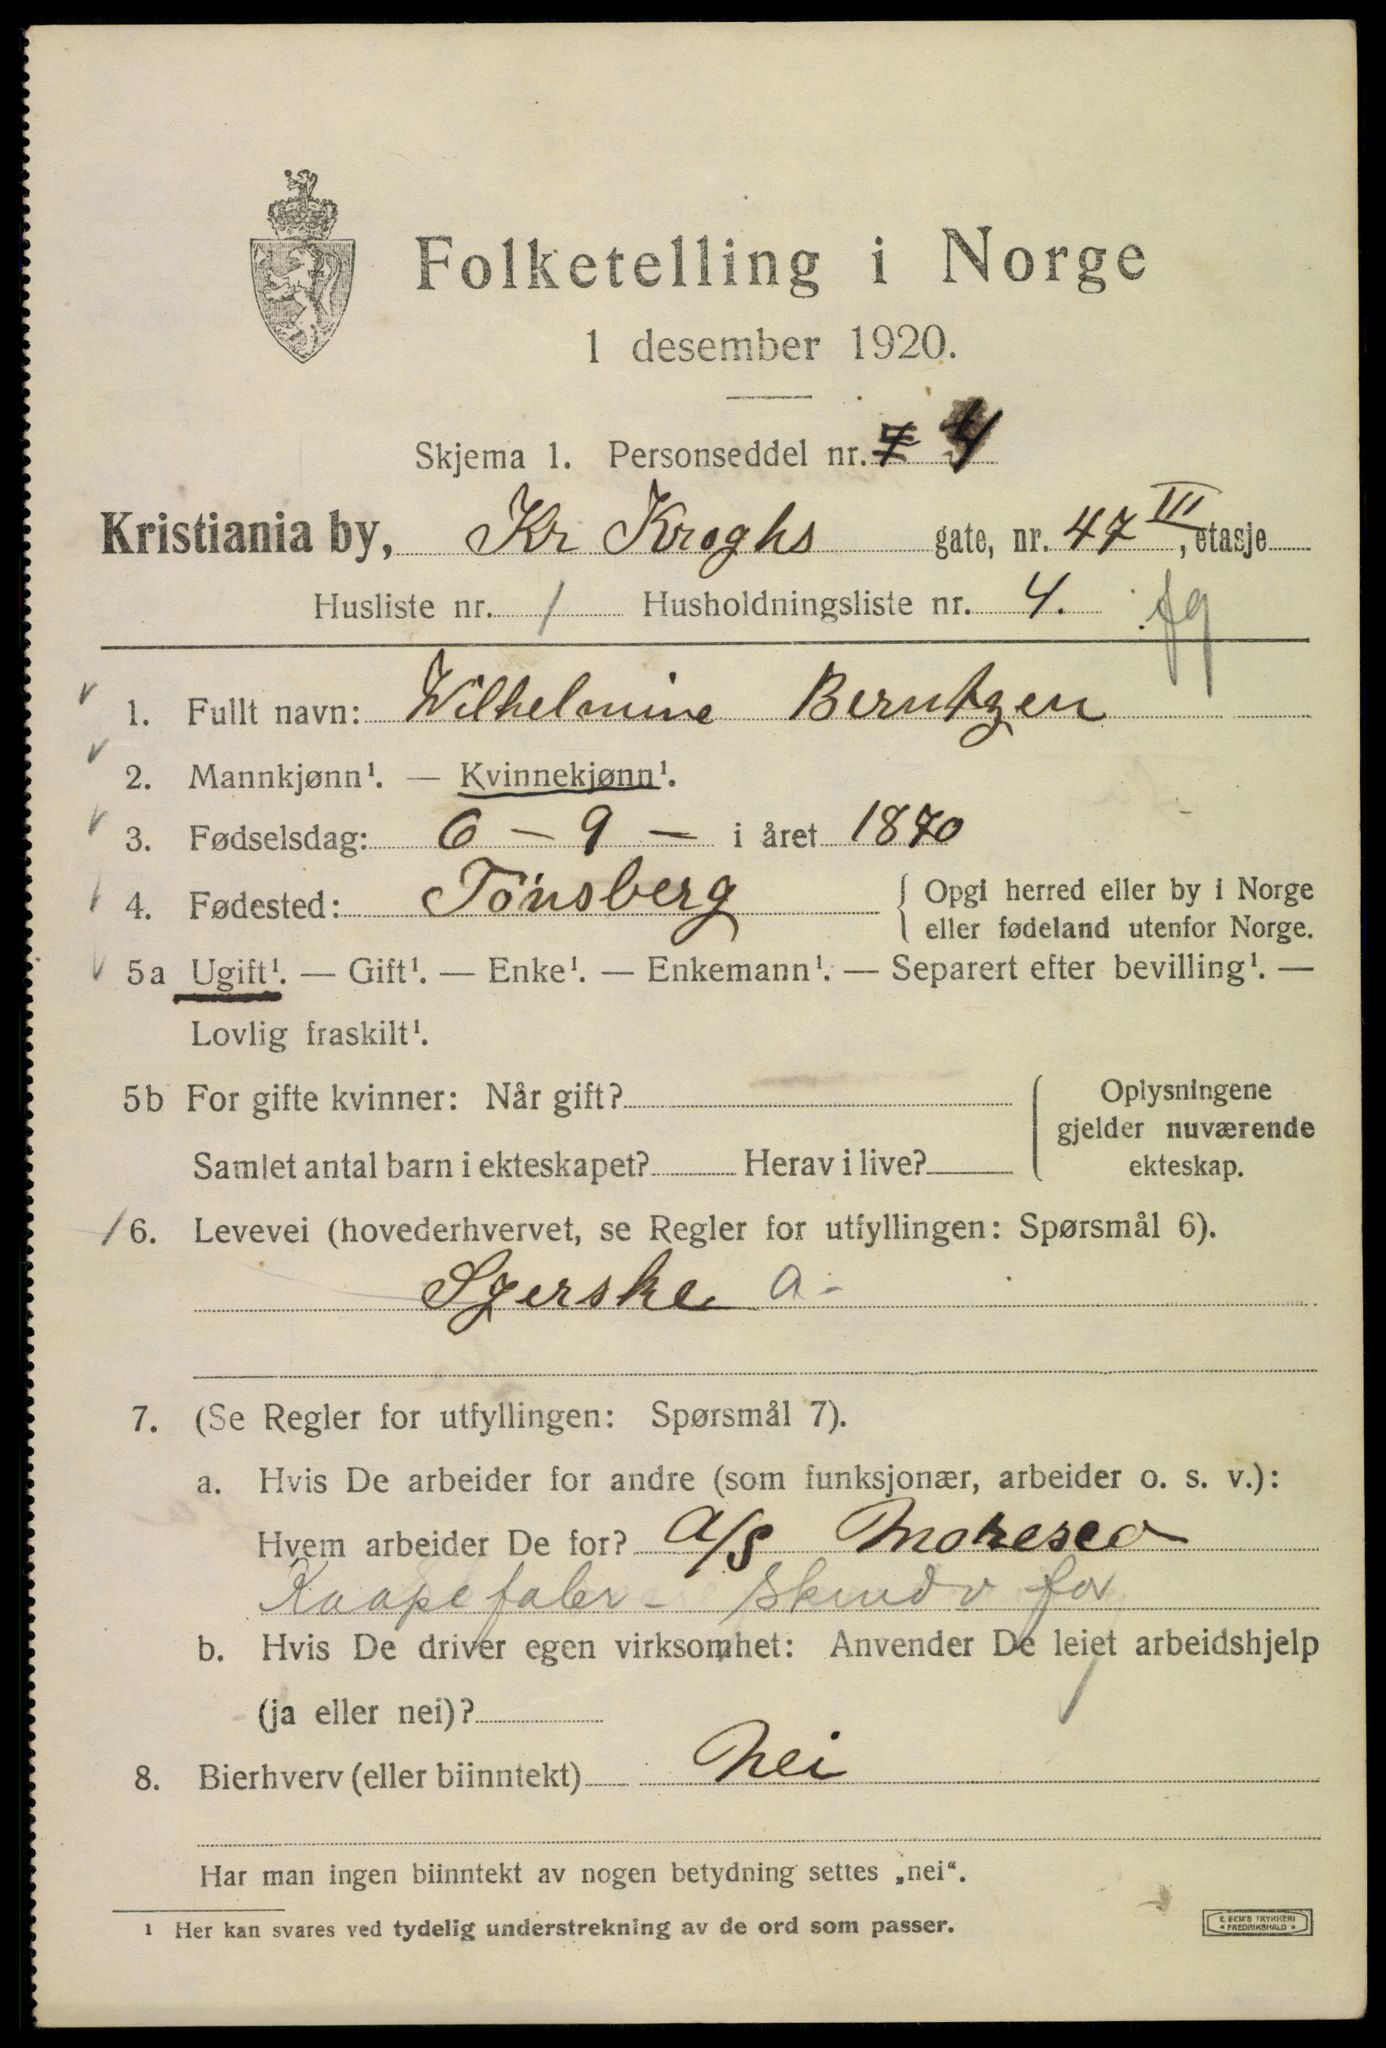 Folketelling i Norge
1 desember 1920.
Skjema 1. Personseddel nr. 7 4
Kristiania by, Kr Kroghs gate, nr. 47 III, etasje
Husliste nr. 1 Husholdningsliste nr. 4. fg
1. Fullt navn: Wilhelmine Berntzen
2. Mannkjønn¹. — Kvinnekjønn¹.
3. Fødselsdag: 6 — 9 — i året 1870
4. Fødested: Tönsberg { Opgi herred eller by i Norge
eller fødeland utenfor Norge.
5a Ugift¹. — Gift¹. — Enke¹. — Enkemann¹. — Separert efter bevilling¹. —
Lovlig fraskilt¹.
5b For gifte kvinner: Når gift? Oplysningene
gjelder nuværende
Samlet antal barn i ekteskapet? Herav i live? ekteskap.
6. Levevei (hovederhvervet, se Regler for utfyllingen: Spørsmål 6).
Syerske a-
7. (Se Regler for utfyllingen: Spørsmål 7).
a. Hvis De arbeider for andre (som funksjonær, arbeider o. s. v.):
Hvem arbeider De for? A/S Moresco
Kaapefabr- for
b. Hvis De driver egen virksomhet: Anvender De leiet arbeidshjelp
(ja eller nei)?
8. Bierhverv (eller biinntekt) Nei
Har man ingen biinntekt av nogen betydning settes „nei“.
¹ Her kan svares ved tydelig understrekning av de ord som passer.
E. SEM'S TRYKKERI
• FREDRIKSHALD •